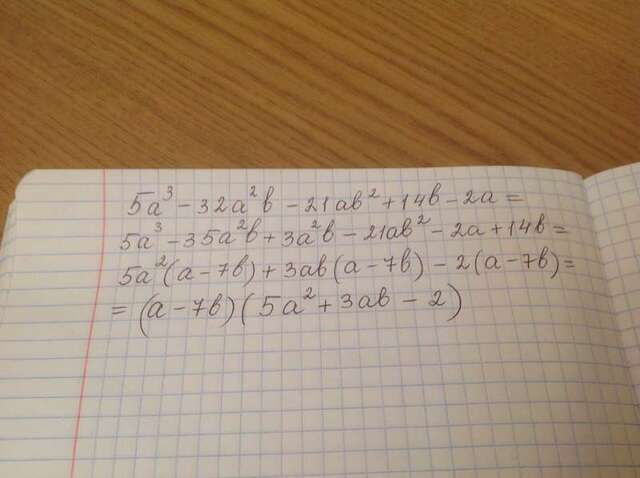 5a³ - 32a²b - 21ab² + 14b - 2a =
5a³ - 35a²b + 3a²b - 21ab² - 2a + 14b =
5a²(a - 7b) + 3ab(a - 7b) - 2(a - 7b) =
= (a - 7b)(5a² + 3ab - 2)